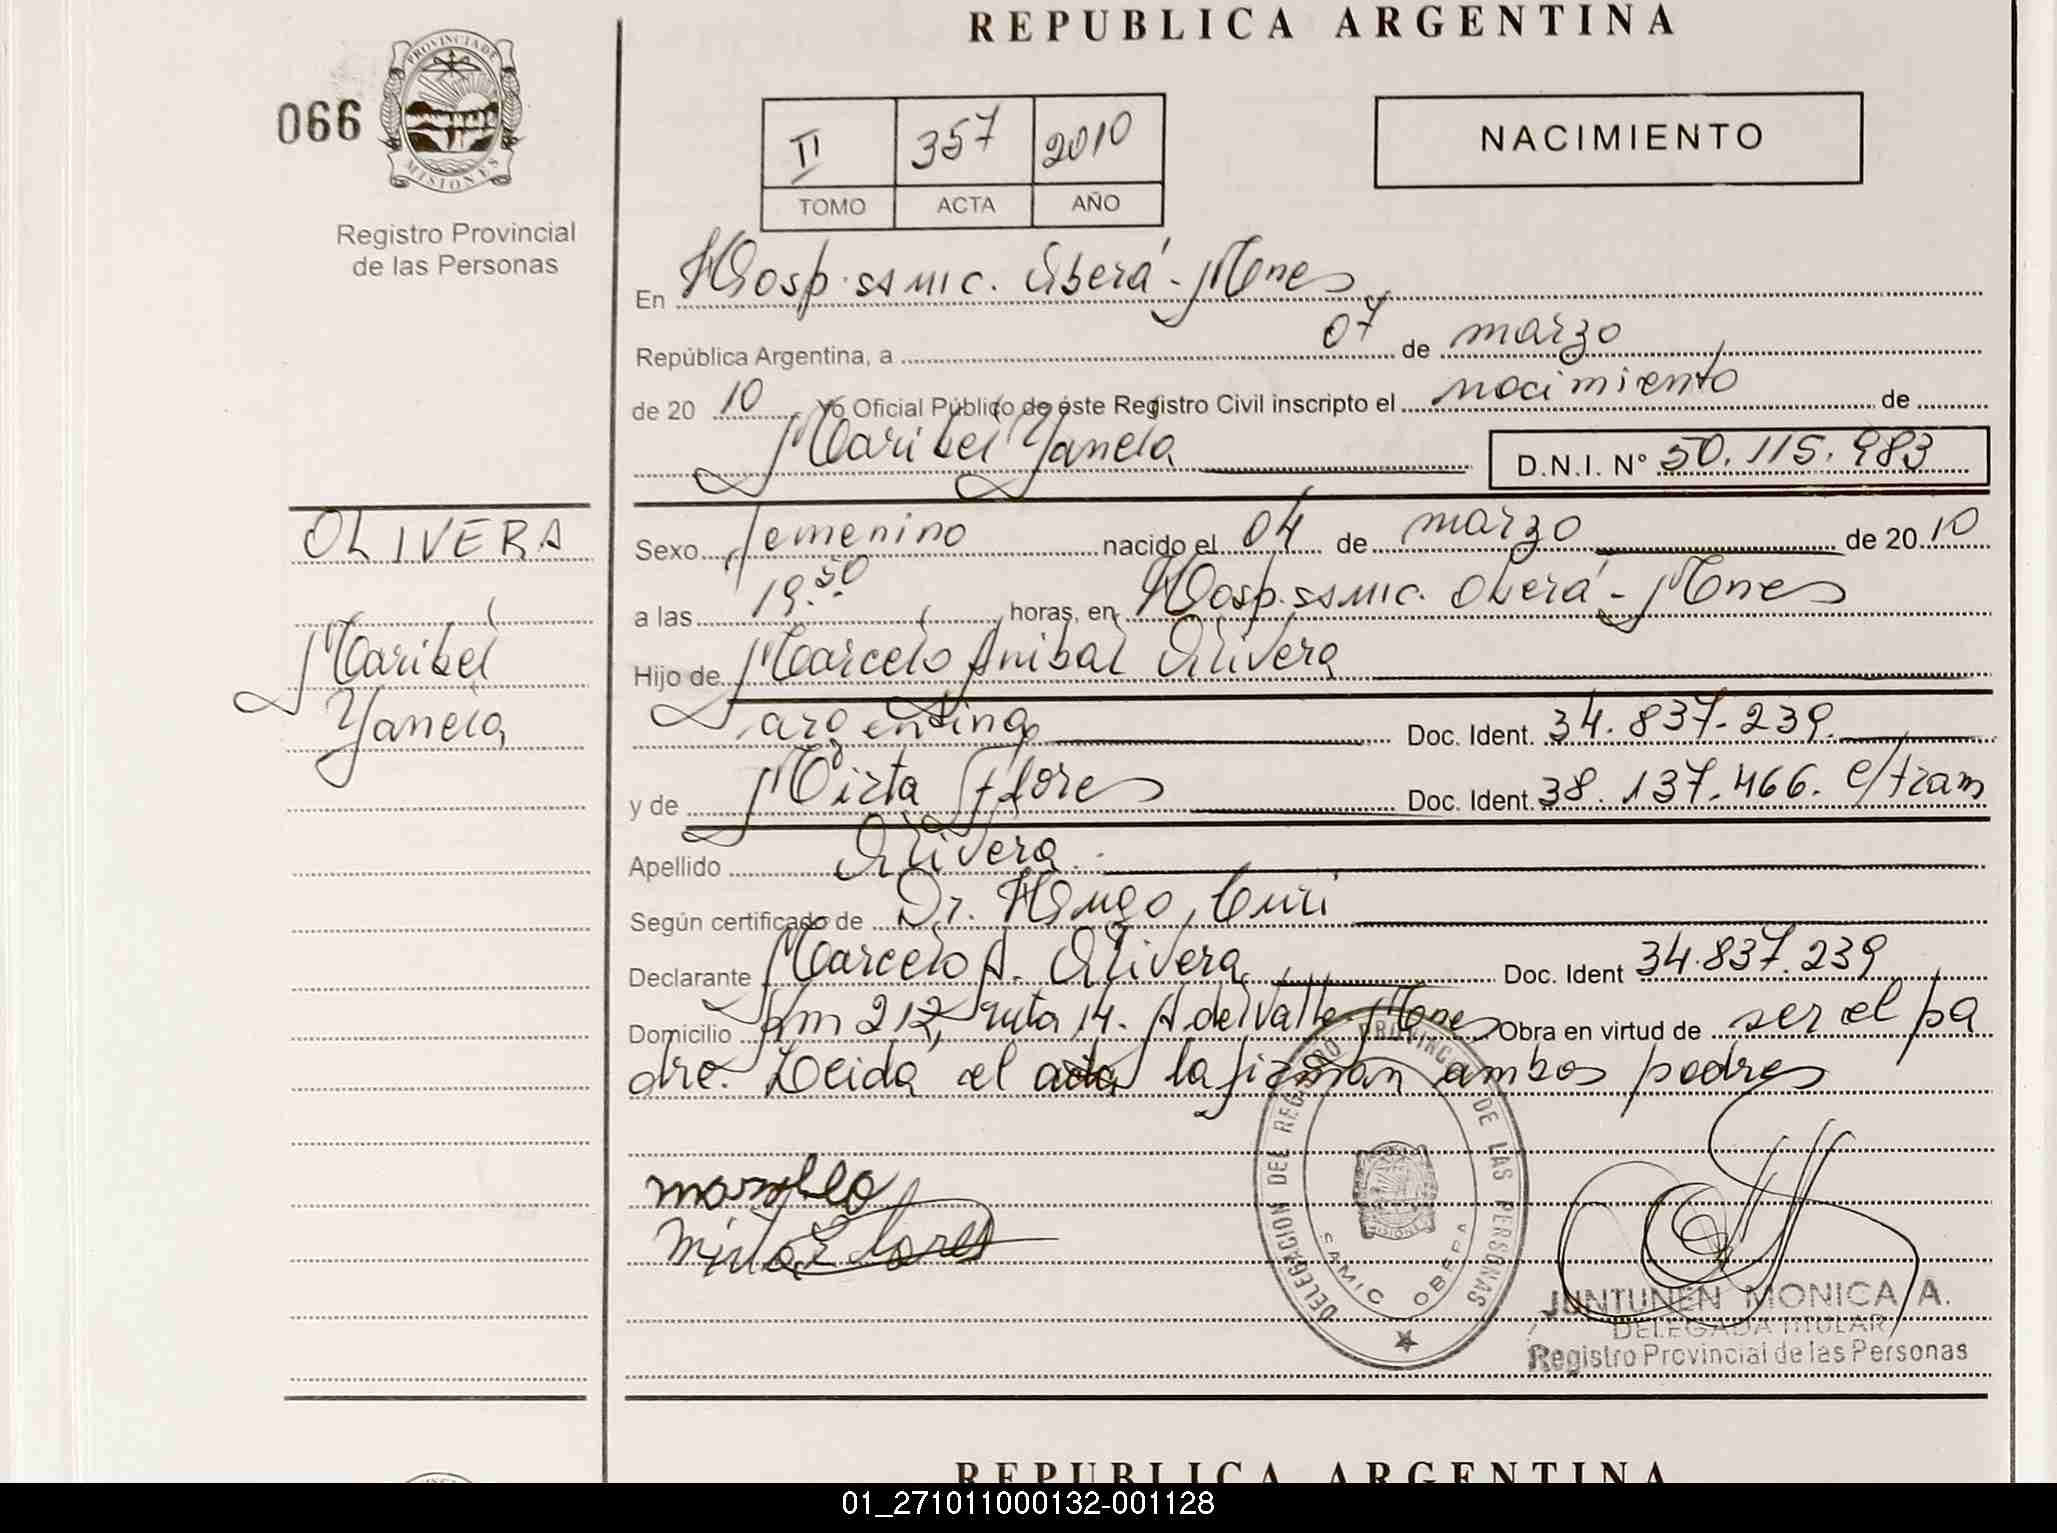 REPUBLICA ARGENTINA
066
PROVINCIA DE
MISIONES
Registro Provincial
de las Personas
II 357 2010
TOMO ACTA AÑO
NACIMIENTO
En Hosp. SAMIC. Oberá - Mnes
República Argentina, a 07 de marzo
de 20 10 Yo Oficial Público de éste Registro Civil inscripto el nacimiento de
Maribel Yanela D.N.I. N° 50.115.983
OLIVERA
Maribel
Yanela
Sexo femenino nacido el 04 de marzo de 20 10
a las 19:50 horas, en Hosp. SAMIC. Oberá - Mnes
Hijo de Marcelo Anibal Olivera
argentino Doc. Ident. 34.837.239.
y de Mirta Flores Doc. Ident. 38.137.466. e/tram
Apellido Olivera
Según certificado de Dr. Hugo Curi
Declarante Marcelo A. Olivera Doc. Ident 34.837.239
Domicilio Km 212, ruta 14. A. del Valle - Mnes Obra en virtud de ser el pa
dre. Leida el acta la firman ambos padres
marcelo
Mirta Flores
DELEGACION DEL REGISTRO PROVINCIAL DE LAS PERSONAS
MISIONES
SAMIC OBERA
JUNTUNEN MONICA A.
DELEGADA TITULAR
Registro Provincial de las Personas
REPUBLICA ARGENTINA
01_271011000132-001128